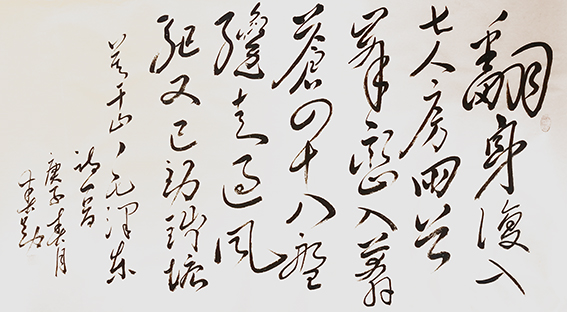 翻身復入
七人房回首
峯巒入莽
蒼四十八盤
纔走過風
馳又已到錢塘
莫干山毛澤東
詩一首
庚子春月